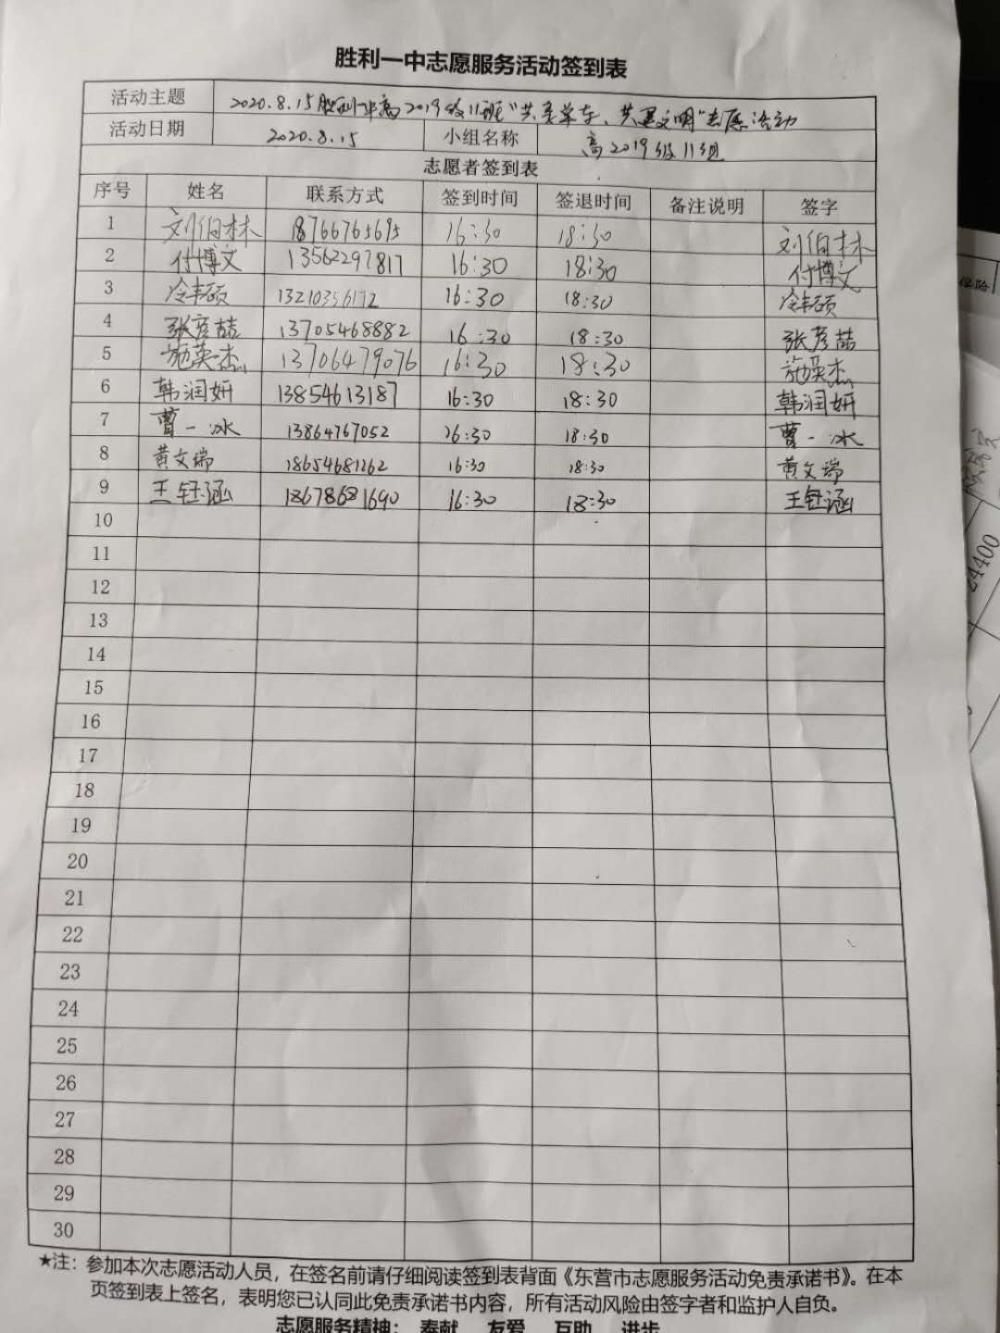 胜利一中志愿服务活动签到表
活动主题 2020.8.15胜利一中高2019级11班"共享单车、共建文明"志愿活动
活动日期 2020.8.15 小组名称 高2019级11组
志愿者签到表
序号 姓名 联系方式 签到时间 签退时间 备注说明 签字
1 刘伯林 18766765695 16:30 18:30 刘伯林
2 付博文 13562297817 16:30 18:30 付博文
3 冷韦硕 13210356172 16:30 18:30 冷韦硕
4 张彦喆 13705468882 16:30 18:30 张彦喆
5 施英杰 13706479076 16:30 18:30 施英杰
6 韩润妍 13854613187 16:30 18:30 韩润妍
7 曹一冰 13864767052 16:30 18:30 曹一冰
8 黄文瑞 18654681262 16:30 18:30 黄文瑞
9 王钰涵 18678681690 16:30 18:30 王钰涵
10
11
12
13
14
15
16
17
18
19
20
21
22
23
24
25
26
27
28
29
30
★注：参加本次志愿活动人员，在签名前请仔细阅读签到表背面《东营市志愿服务活动免责承诺书》。在本
页签到表上签名，表明您已认同此免责承诺书内容，所有活动风险由签字者和监护人自负。
志愿服务精神： 奉献 友爱 互助 进步
24400